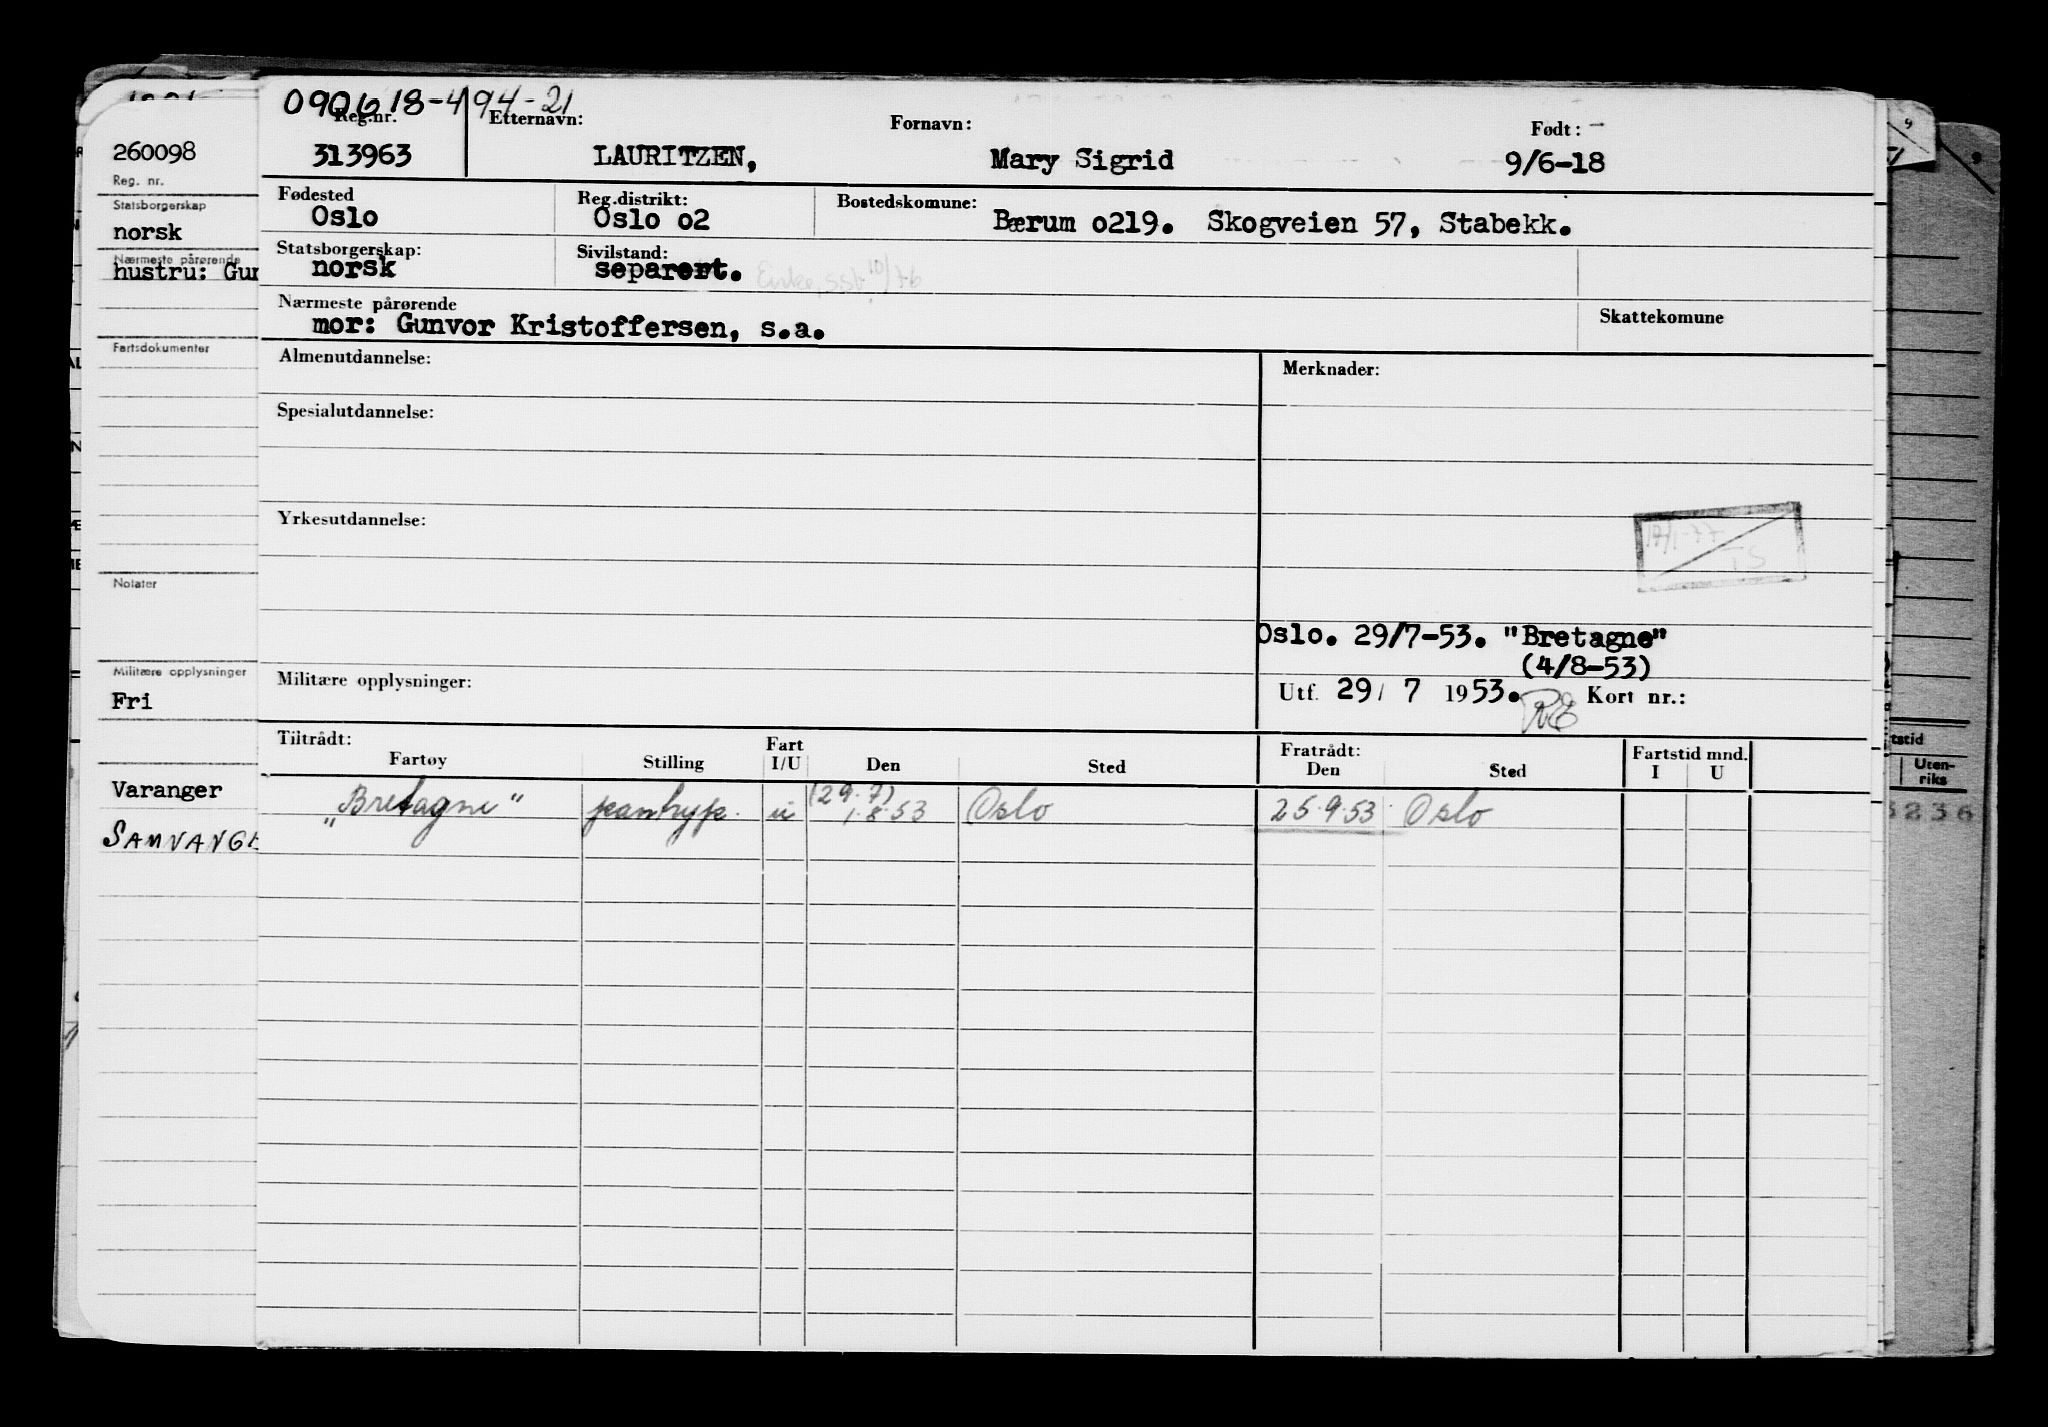 090618-494-21
Reg.nr. Etternavn: Fornavn: Født:
313963 LAURITZEN, Mary Sigrid 9/6-18
Fødested Reg.distrikt: Bostedskomune:
Oslo Oslo o2 Bærum o219. Skogveien 57, Stabekk.
Statsborgerskap: Sivilstand:
norsk separert.
Nærmeste pårørende Skattekomune
mor: Gunvor Kristoffersen, s.a.
Almenutdannelse: Merknader:
Spesialutdannelse:
Yrkesutdannelse:
17/1-77
TS
Oslo. 29/7-53. "Bretagne"
(4/8-53)
Militære opplysninger: Utf. 29/ 7 1953. Kort nr.:
RE
Tiltrådt: Fart Fratrådt: Fartstid mnd.
Fartøy Stilling I/U Den Sted Den Sted I U
(29.7)
„Bretagne" pantryp. u 1.8.53 Oslo 25.9.53 Oslo
260098
Reg. nr.
Statsborgerskap
norsk
Nærmeste pårørende
hustru: Gun
Fartsdokumenter
Notater
Militære opplysninger
Fri
Varanger
SAMNANGE
tstid
Uten-
riks
5236